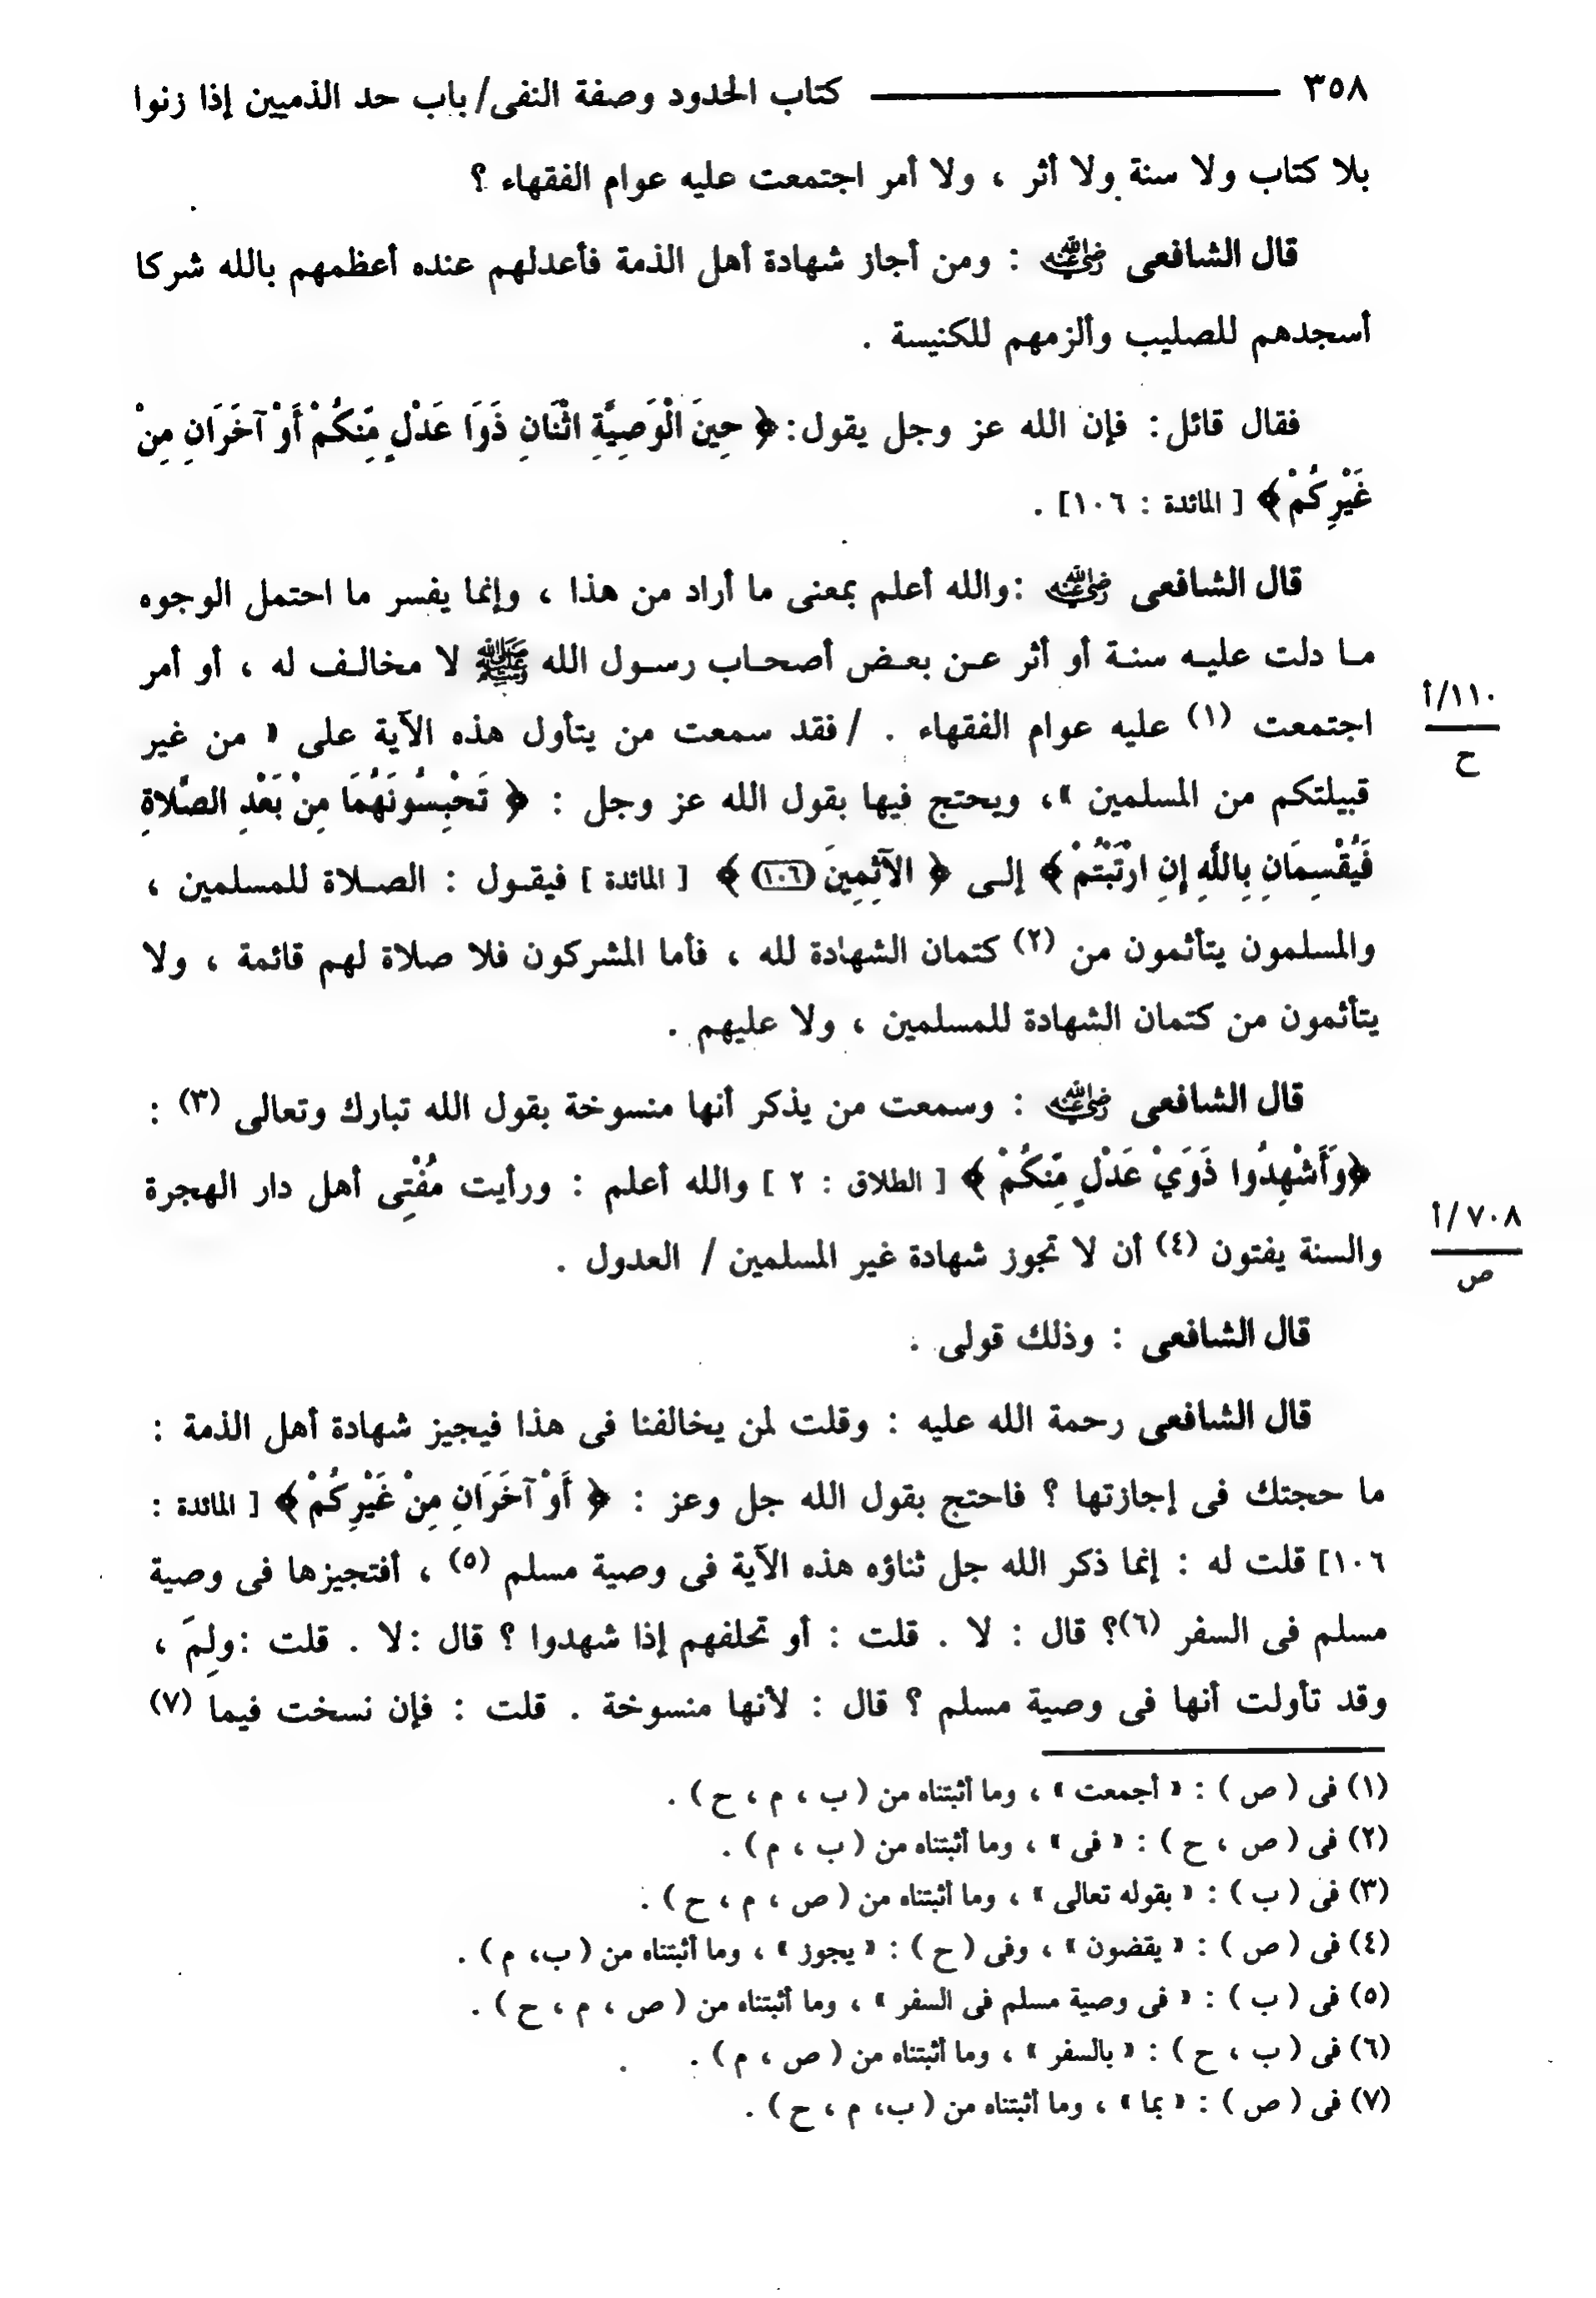 ٣٥٨ ــــــــــ كتاب الحدود وصفة النفى/ باب حد الذميين إذا زنوا
بلا كتاب ولا سنة ولا أثر ، ولا أمر اجتمعت عليه عوام الفقهاء ؟
قال الشافعى رضي الله عنه : ومن أجاز شهادة أهل الذمة فأعدلهم عنده أعظمهم بالله شركا
أسجدهم للصليب وألزمهم للكنيسة .
فقال قائل : فإن الله عز وجل يقول : ﴿ حِينَ الْوَصِيَّةِ اثْنَانِ ذَوَا عَدْلٍ مِّنكُمْ أَوْ آخَرَانِ مِنْ
غَيْرِكُمْ ﴾ [ المائدة : ١٠٦] .
قال الشافعى رضي الله عنه : والله أعلم بمعنى ما أراد من هذا ، وإنما يفسر ما احتمل الوجوه
ما دلت عليه سنة أو أثر عن بعض أصحاب رسول الله ﷺ لا مخالف له ، أو أمر
اجتمعت (١) عليه عوام الفقهاء . / فقد سمعت من يتأول هذه الآية على « من غير
١١٠/أ
ح
قبيلتكم من المسلمين »، ويحتج فيها بقول الله عز وجل : ﴿ تَحْبِسُونَهُمَا مِنْ بَعْدِ الصَّلاةِ
فَيُقْسِمَانِ بِاللَّهِ إِنِ ارْتَبْتُمْ ﴾ إلى ﴿ الآثِمِينَ (١٠٦) ﴾ [ المائدة ] فيقول : الصلاة للمسلمين ،
والمسلمون يتأثمون من (٢) كتمان الشهادة لله ، فأما المشركون فلا صلاة لهم قائمة ، ولا
يتأثمون من كتمان الشهادة للمسلمين ، ولا عليهم .
قال الشافعى رضي الله عنه : وسمعت من يذكر أنها منسوخة بقول الله تبارك وتعالى (٣) :
﴿وَأَشْهِدُوا ذَوَيْ عَدْلٍ مِّنكُمْ ﴾ [ الطلاق : ٢ ] والله أعلم : ورأيت مُفْتِى أهل دار الهجرة
والسنة يفتون (٤) أن لا تجوز شهادة غير المسلمين / العدول .
٧٠٨/أ
ص
قال الشافعى : وذلك قولى .
قال الشافعى رحمة الله عليه : وقلت لمن يخالفنا فى هذا فيجيز شهادة أهل الذمة :
ما حجتك فى إجازتها ؟ فاحتج بقول الله جل وعز : ﴿ أَوْ آخَرَانِ مِنْ غَيْرِكُمْ ﴾ [ المائدة :
١٠٦] قلت له : إنما ذكر الله جل ثناؤه هذه الآية فى وصية مسلم (٥) ، أفتجيزها فى وصية
مسلم فى السفر (٦)؟ قال : لا . قلت : أو تحلفهم إذا شهدوا ؟ قال : لا . قلت : ولِمَ ،
وقد تأولت أنها فى وصية مسلم ؟ قال : لأنها منسوخة . قلت : فإن نسخت فيما (٧)
(١) فى ( ص ) : « أجمعت » ، وما أثبتناه من ( ب ، م ، ح ) .
(٢) فى ( ص ، ح ) : « فى » ، وما أثبتناه من ( ب ، م ) .
(٣) فى ( ب ) : « بقوله تعالى » ، وما أثبتناه من ( ص ، م ، ح ) .
(٤) فى ( ص ) : « يقضون » ، وفى ( ح ) : « يجوز » ، وما أثبتناه من ( ب، م ) .
(٥) فى ( ب ) : « فى وصية مسلم فى السفر » ، وما أثبتناه من ( ص ، م ، ح ) .
(٦) فى ( ب ، ح ) : « بالسفر » ، وما أثبتناه من ( ص ، م ) .
(٧) فى ( ص ) : « بما » ، وما أثبتناه من ( ب، م ، ح ) .